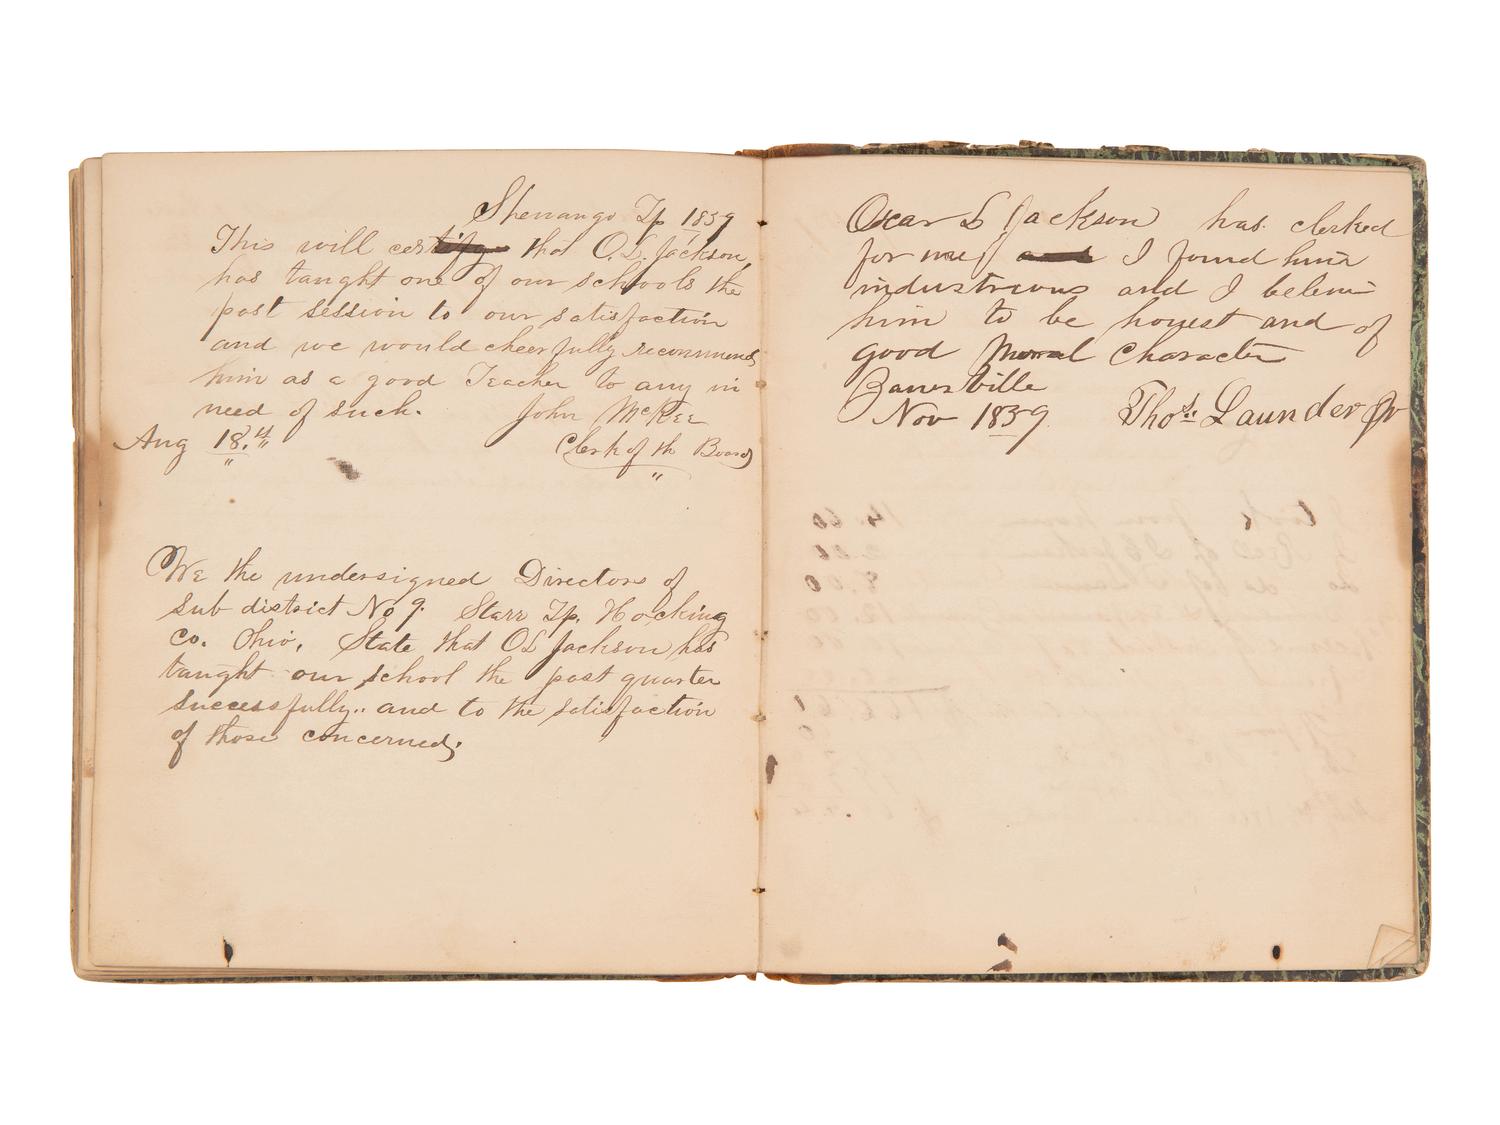 Shenango Tp 1859
This will certify that O. L. Jackson,
has taught one of our schools the
past session to our satisfaction
and we would cheerfully recommend
him as a good Teacher to any in
need of such. John McKee
Aug 18.th Clerk of th Board
We the undersigned Directors of
Sub district No 9. Starr Tp. Hocking
Co. Ohio, State that OL Jackson has
taught our school the past quarter
successfully.. and to the satisfaction
of those concerned,
Oscar L Jackson has clerked
for me I found him
industrious and I beleive
him to be honest and of
good Moral Character
Nov 1859 Thos. Launder Jr